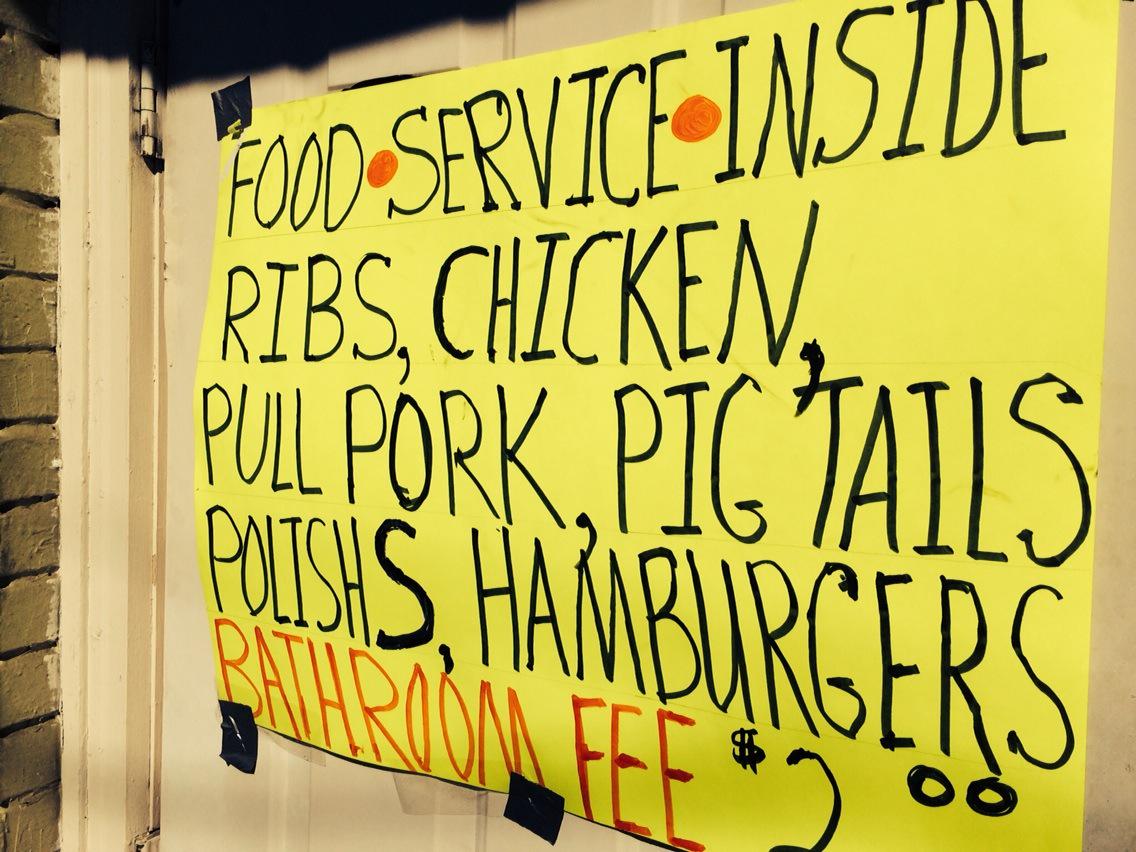 FOOD • SERVICE • INSIDE
RIBS, CHICKEN,
PULL PORK, PIG TAILS
POLISHS, HAMBURGERS
BATHROOM FEE $2 00